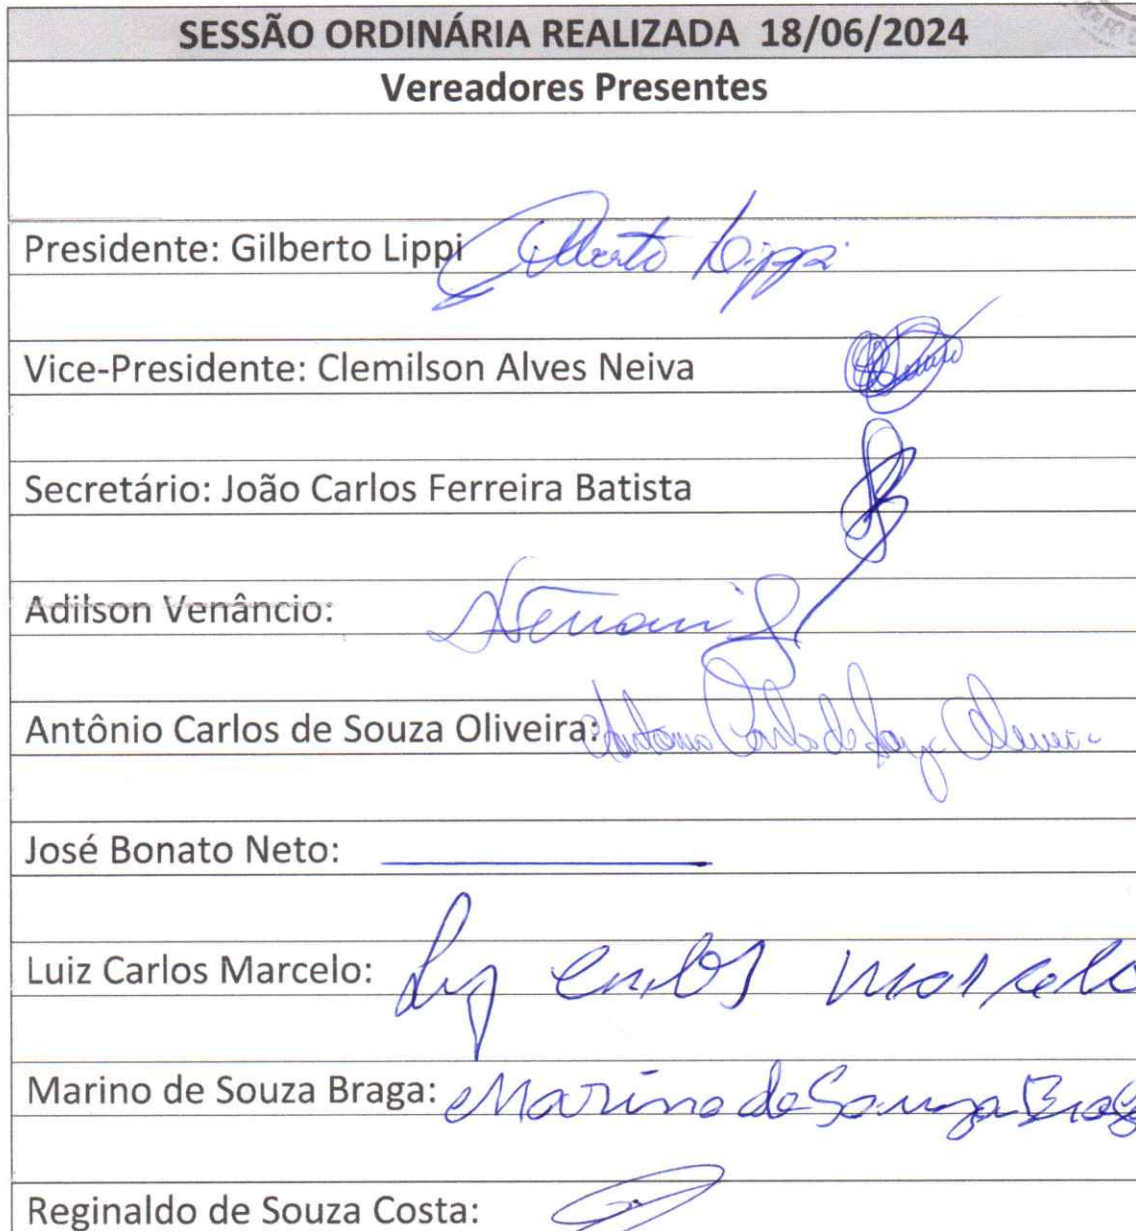 SESSÃO ORDINÁRIA REALIZADA 18/06/2024
Vereadores Presentes
Presidente: Gilberto Lippi Gilberto Lippi
Vice-Presidente: Clemilson Alves Neiva
Secretário: João Carlos Ferreira Batista
Adilson Venâncio:
Antônio Carlos de Souza Oliveira: Antonio Carlos de Souza Oliveira
José Bonato Neto:
Luiz Carlos Marcelo: Luiz Carlos Marcelo
Marino de Souza Braga: Marino de Souza Brag
Reginaldo de Souza Costa: